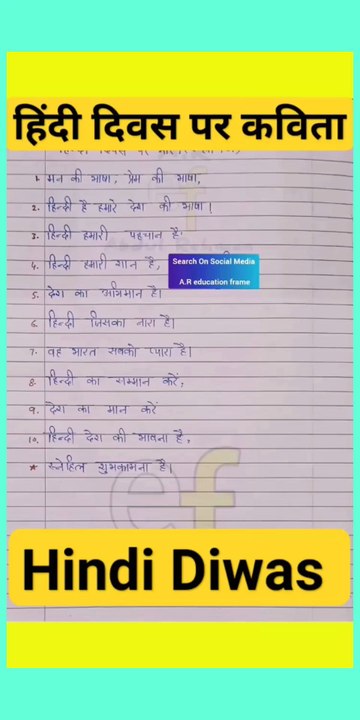 हिंदी दिवस पर कविता
1. मन की भाषा, प्रेम की भाषा,
2. हिन्दी है हमारे देश की भाषा।
3. हिन्दी हमारी पहचान है,
4. हिन्दी हमारी शान है,
Search On Social Media
A.R education frame
5. देश का अभिमान है।
6. हिन्दी जिसका नारा है।
7. वह भारत सबको प्यारा है।
8. हिन्दी का सम्मान करें,
9. देश का मान करें
10. हिन्दी देश की भावना है,
* स्नेहिल शुभकामना है।
ef
Hindi Diwas